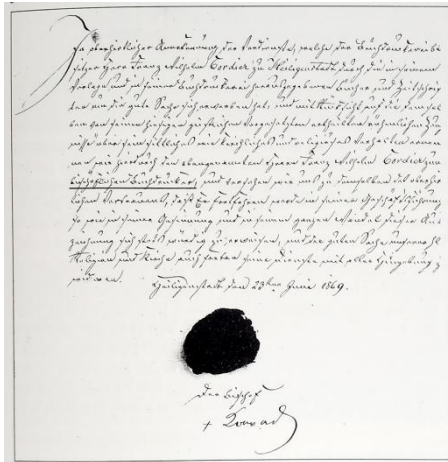 In oberhirtlicher Anerkennung der Verdienste, welche der Buchdruckereibe-
sitzer Herr Franz Wilhelm Cordier zu Heiligenstadt durch die in seinem
Verlage und in seiner Buchdruckerei herausgegebenen Bücher und Zeitschrif-
ten um die gute Sache sich erworben hat, und mit Hinsicht auf die demsel-
ben von seinen hiesigen geistlichen Vorgesetzten ertheilten rühmlichen Zeug-
nisse über sein sittliches kirchliches und religiöses Verhalten ernen-
nen wir hierdurch den obengenannten Herrn Franz Wilhelm Cordier zum
bischöflichen Buchdrucker, und versehen wir uns zu demselben des oberhirt-
lichen Vertrauens, daß Er fortfahren werde in seiner Geschäftsführung
so wie in seiner Gesinnung und in seinem ganzen Wandel dieser Aus-
zeichnung sich stets würdig zu erweisen, und der guten Sache
Religion und Kirche auch ferner seine Dienste mit aller Hingebung zu
widmen.
Heiligenstadt den 23ten Juni 1869.
Der Bischof
+ Konrad